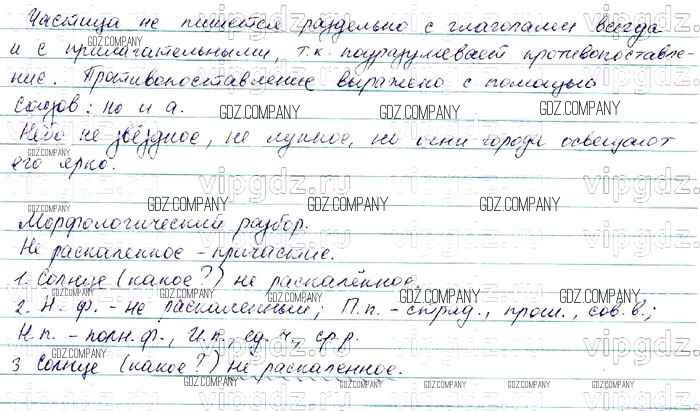 Частица не пишется раздельно с глаголами всегда
и с прилагательными, т.к. подразумевает противопоставле-
ние. Противопоставление выражено с помощью
союзов: но и а.
Небо не звёздное, не лунное, но огни города освещают
его ярко.
Морфологический разбор.
Не раскаленное - причастие.
1. Солнце (какое?) не раскалённое.
2. Н. ф. - не раскаленный; П.п. - стрлд., прош., сов. в.;
Н.п. - полн. ф., И.п., ед. ч., ср. р.
3 Солнце (какое?) не раскаленное.
GDZ.COMPANY
vipgdz.ru